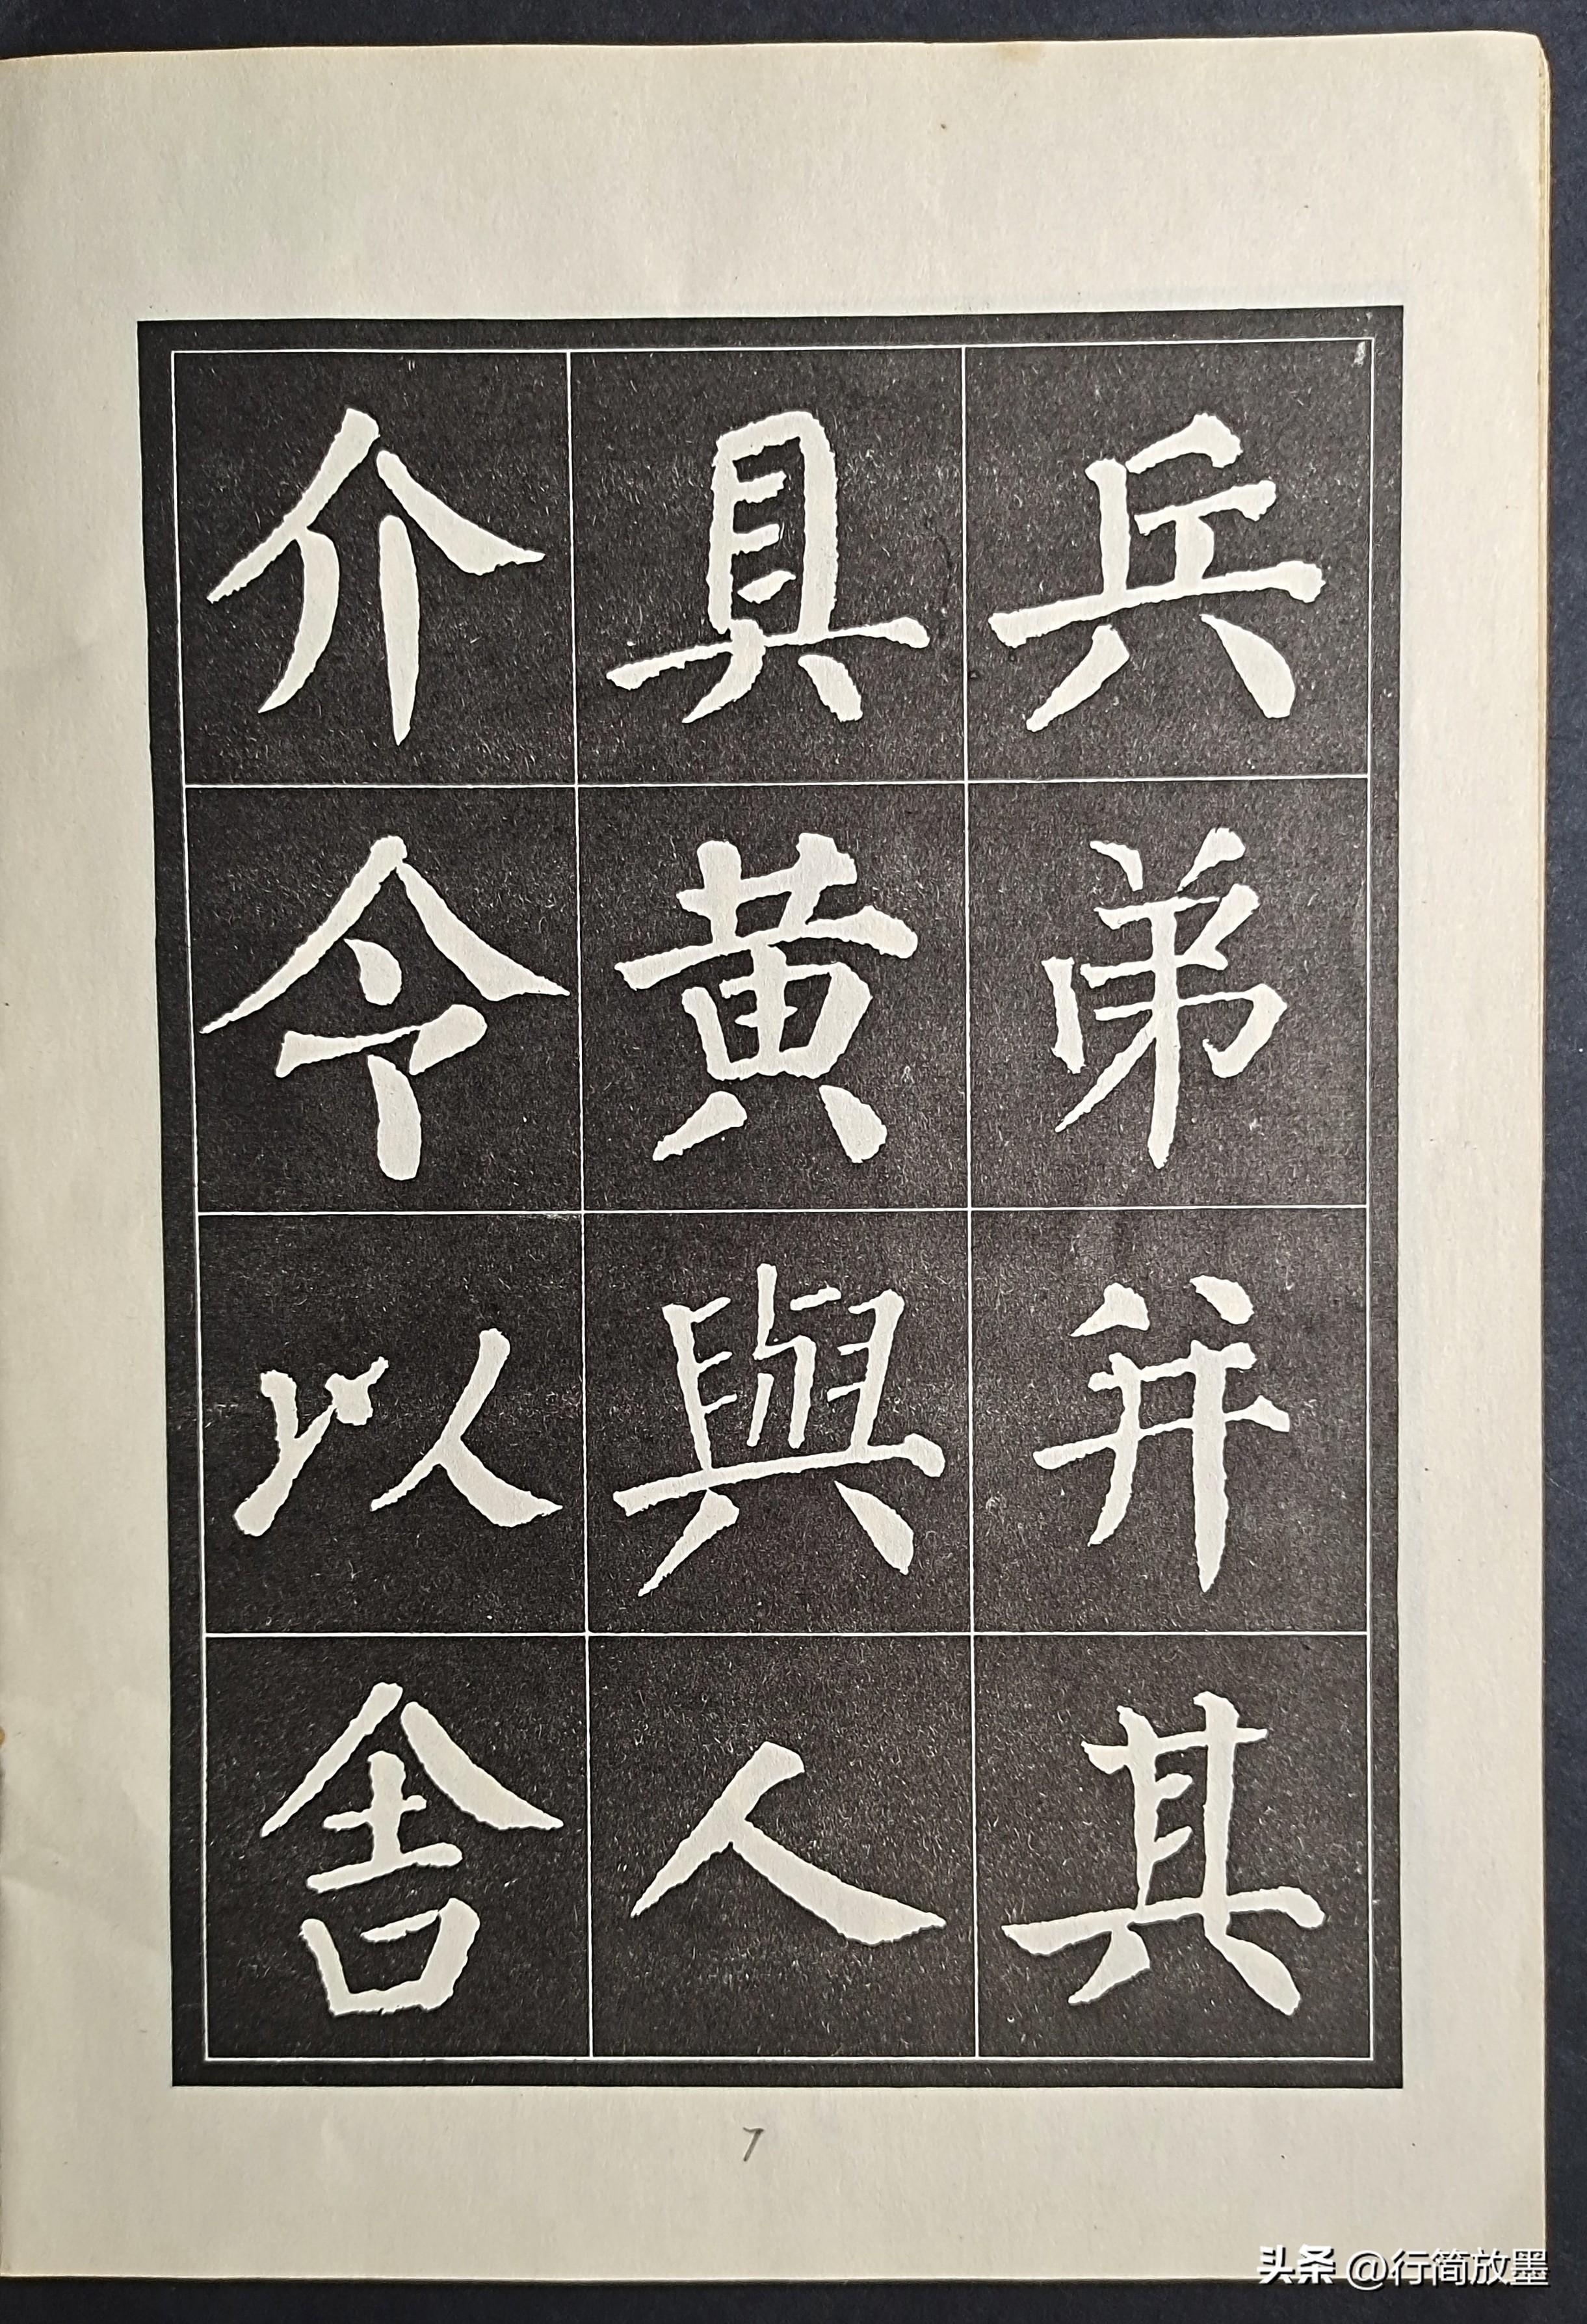 兵弟并其
具黄與人
介令以舍
7
头条 @行简放墨